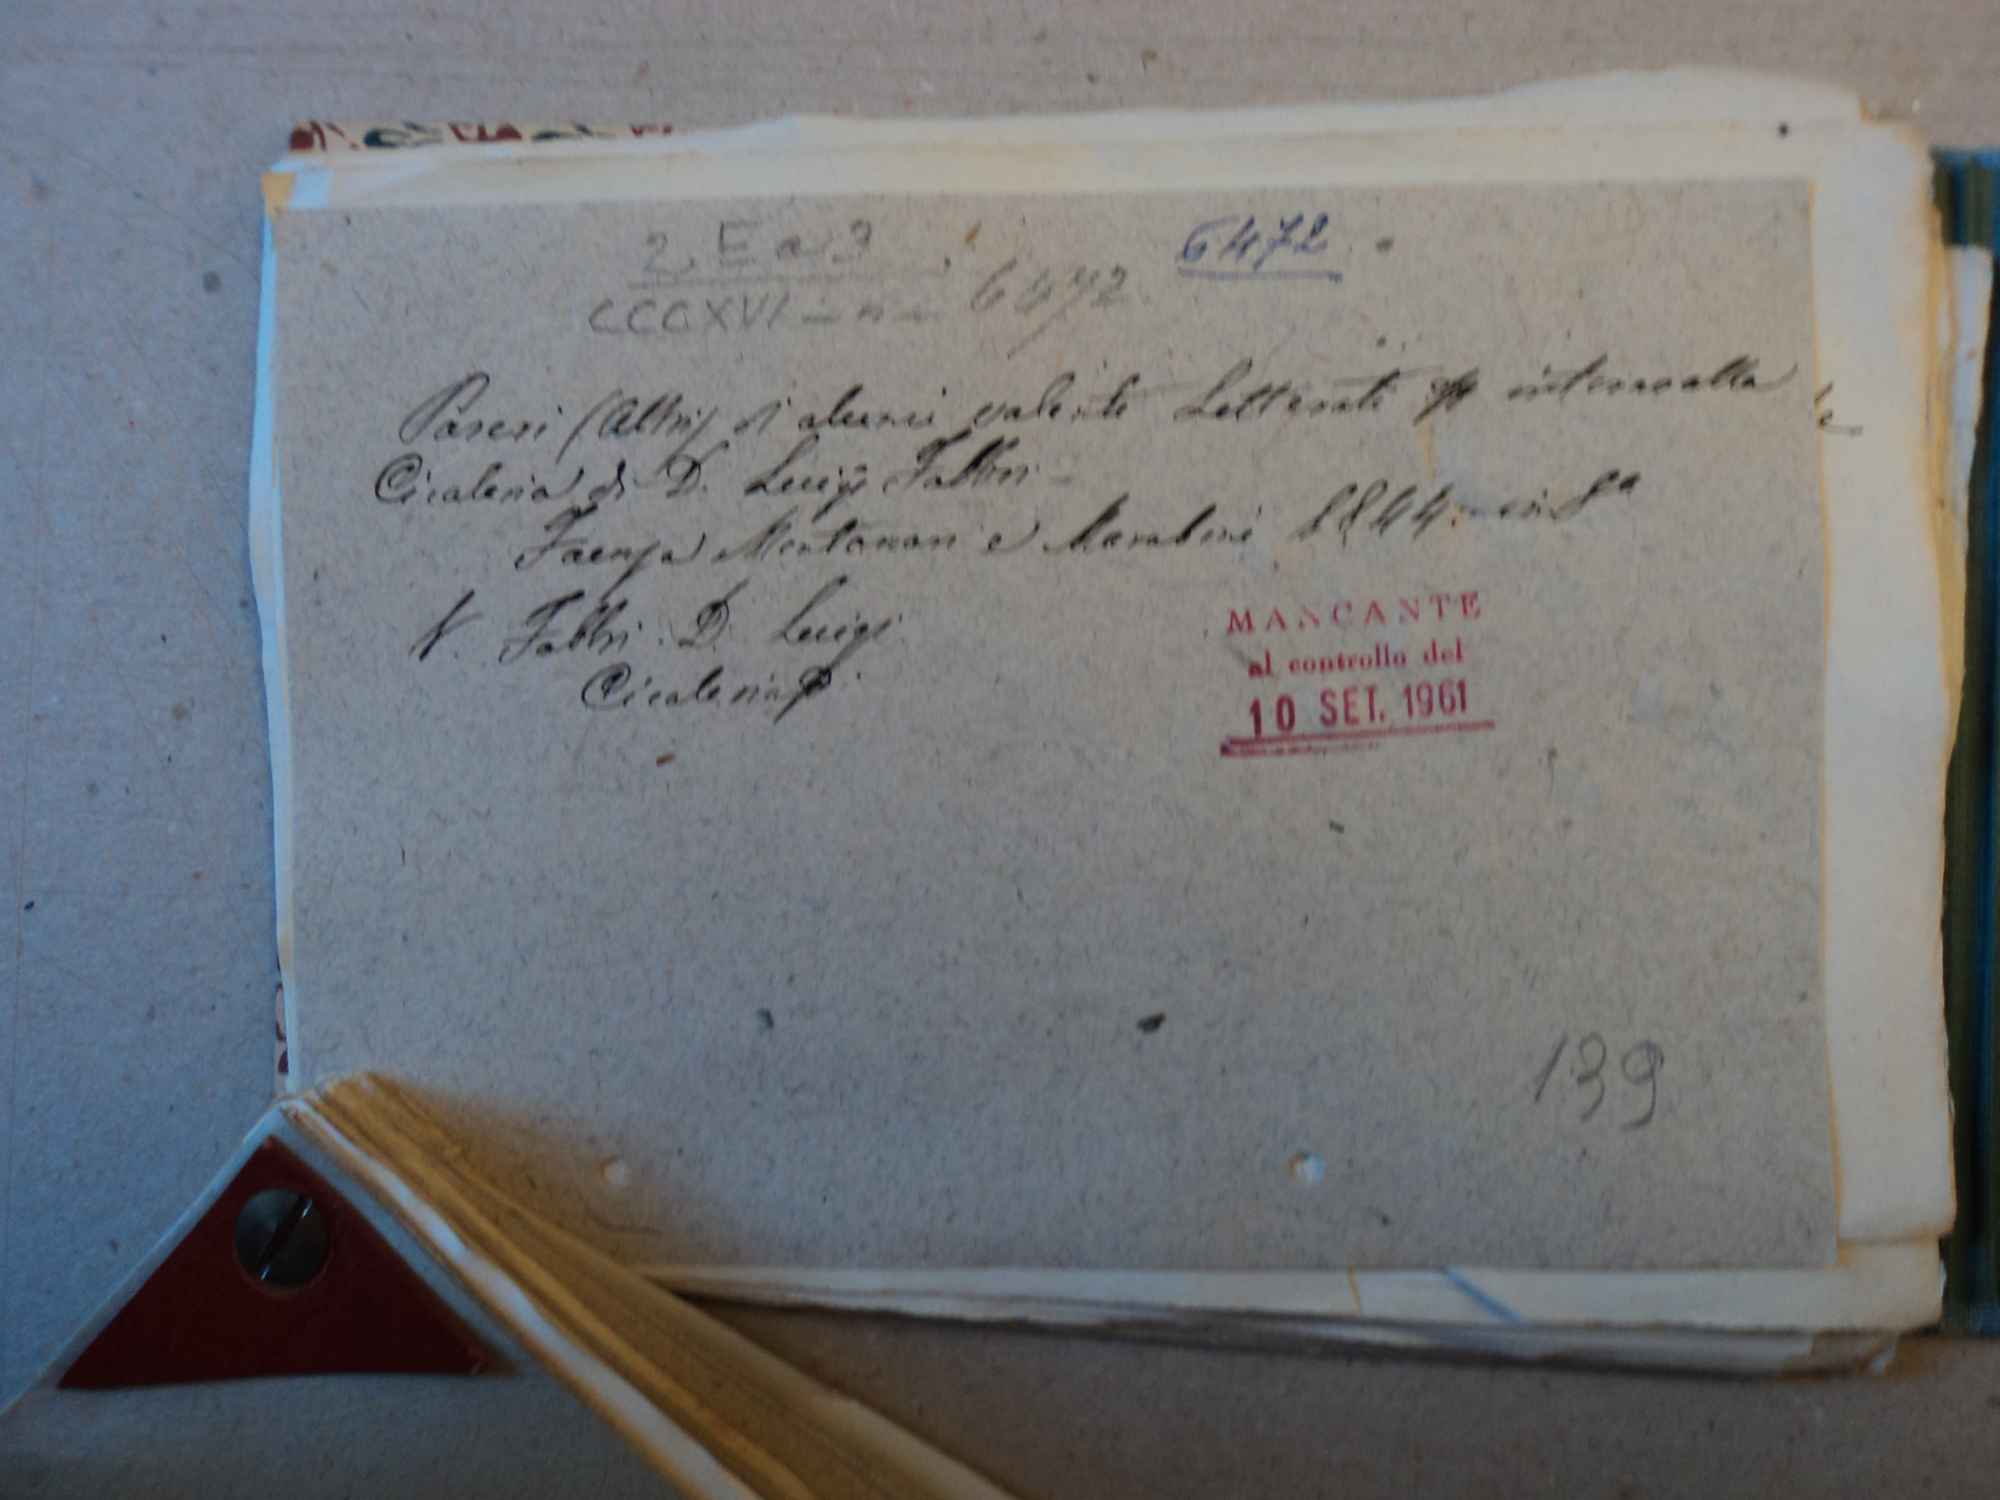 2. E a 3
6472
CCCXVI - n - 6472
Pareri (Altri) di alcuni valenti Letterati intorno alla
Cicaleria di D. Luigi Fabbri -
Faenza Montanari e Marabini 1844 - in 8°
V. Fabbri D. Luigi
Cicaleria
MANCANTE
al controllo del
10 SET. 1961
139